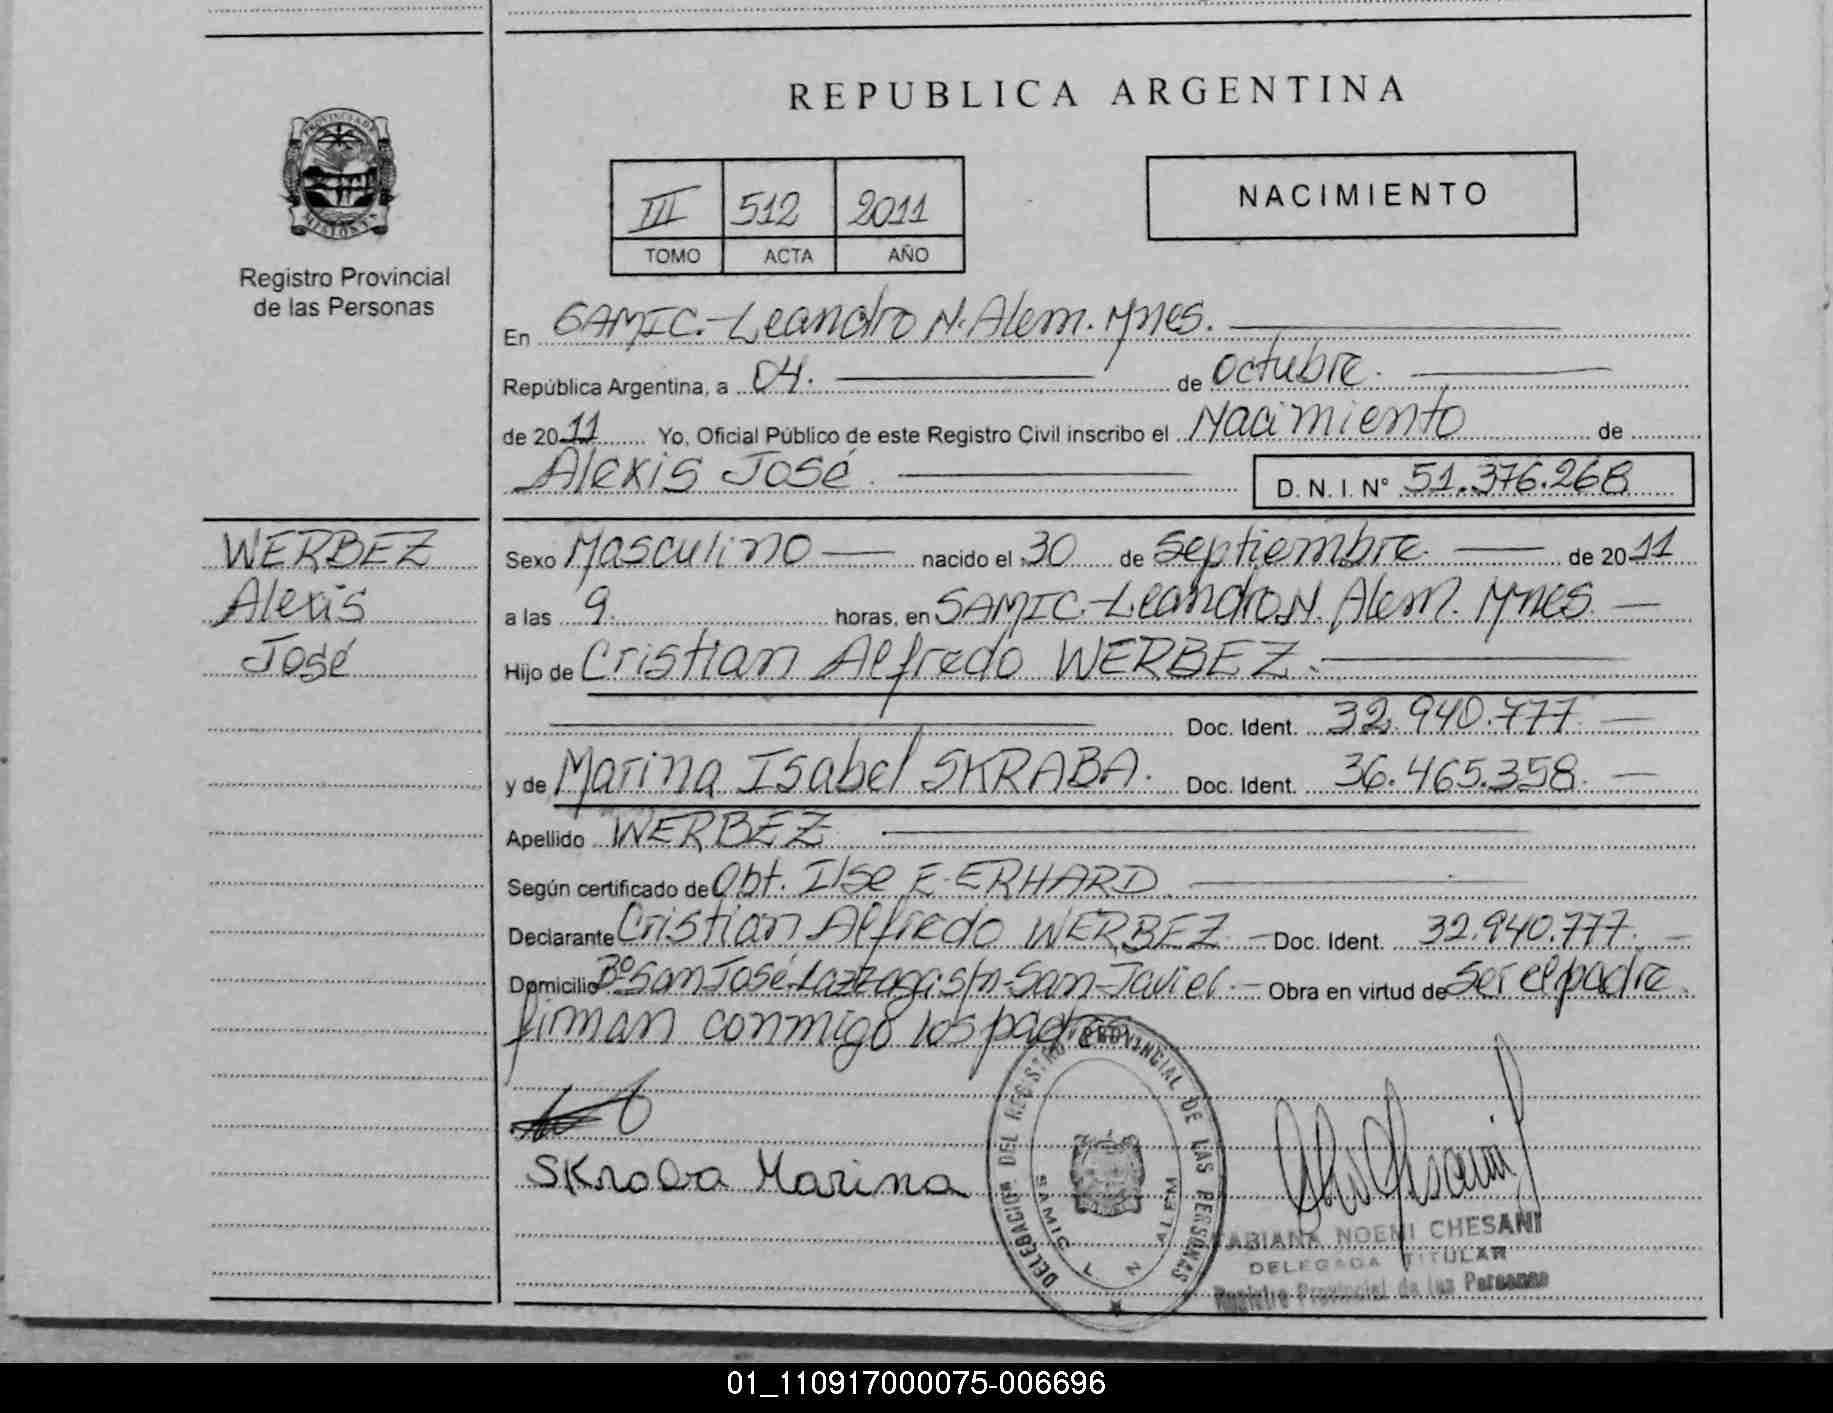 REPUBLICA ARGENTINA
PROVINCIA DE
MISIONES
Registro Provincial
de las Personas
III 512 2011
TOMO ACTA AÑO
NACIMIENTO
En SAMIC.-Leandro N. Alem. Mnes.
República Argentina, a 04. de octubre.
de 2011 Yo, Oficial Público de este Registro Civil inscribo el Nacimiento de
Alexis José. D. N. I. N° 51.376.268
WERBEZ
Alexis
José
Sexo Masculino nacido el 30 de Septiembre. de 2011
a las 9. horas, en SAMIC.-Leandro N. Alem. Mnes.
Hijo de Cristian Alfredo WERBEZ.
Doc. Ident. 32.940.777.
y de Marina Isabel SKRABA. Doc. Ident. 36.465.358.
Apellido WERBEZ
Según certificado de Obt. Ilse E. ERHARD.
Declarante Cristian Alfredo WERBEZ Doc. Ident. 32.940.777.
Domicilio B° San José-Lazzaga s/n-San Javier. Obra en virtud de ser el padre.
firman conmigo los padres
Skraba Marina
DELEGACION DEL REGISTRO PROVINCIAL DE LAS PERSONAS
SAMIC L N ALEM
FABIANA NOEMI CHESANI
DELEGADA TITULAR
Registro Provincial de las Personas
01_110917000075-006696